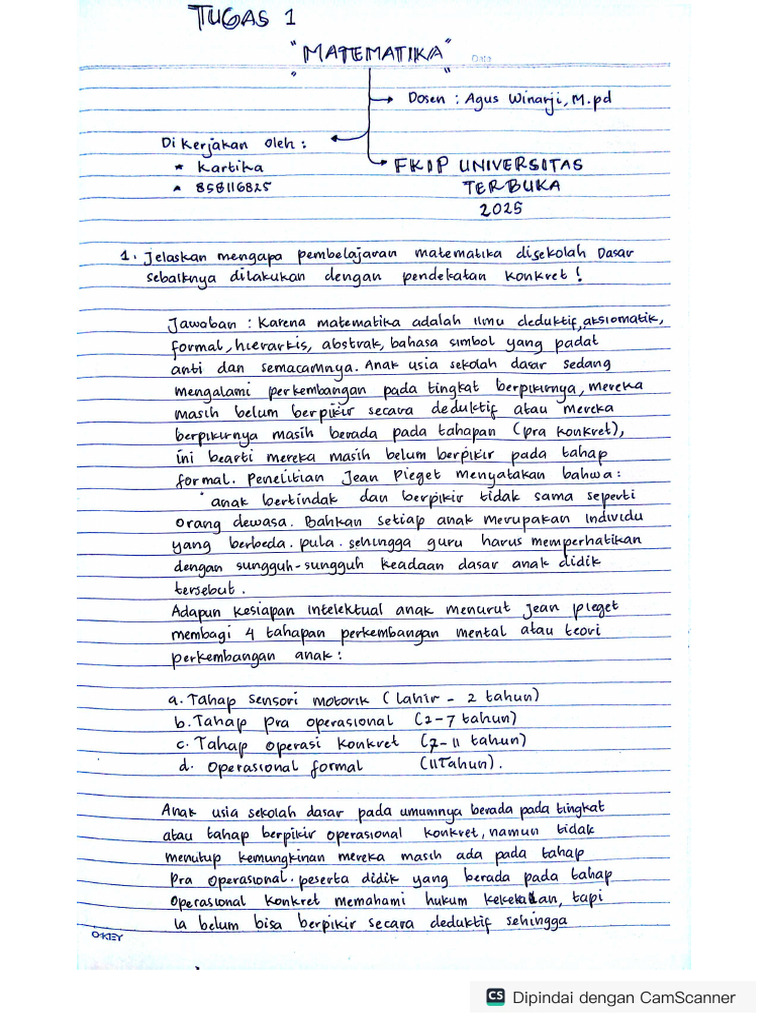 TUGAS 1
"MATEMATIKA"
Date
Dosen : Agus Winarji, M.pd
Di kerjakan oleh :
* Kartika
FKIP UNIVERSITAS
* 858116825
TERBUKA
2025
1. Jelaskan mengapa pembelajaran matematika disekolah Dasar
sebaiknya dilakukan dengan pendekatan konkret !
Jawaban : Karena matematika adalah Ilmu deduktif, aksiomatik,
formal, hierarkis, abstrak, bahasa simbol yang padat
anti dan semacamnya. Anak usia sekolah dasar sedang
mengalami perkembangan pada tingkat berpikirnya, mereka
masih belum berpikir secara deduktif atau mereka
berpikirnya masih berada pada tahapan (pra konkret),
ini bearti mereka masih belum berpikir pada tahap
formal. Penelitian Jean Pieget menyatakan bahwa :
" anak bertindak dan berpikir tidak sama seperti
orang dewasa. Bahkan setiap anak merupakan Individu
yang berbeda. pula. sehingga guru harus memperhatikan
dengan sungguh-sungguh keadaan dasar anak didik
tersebut .
Adapun kesiapan intelektual anak menurut Jean pieget
membagi 4 tahapan perkembangan mental atau teori
perkembangan anak :
a. Tahap Sensori motorik ( lahir - 2 tahun)
b. Tahap pra operasional (2-7 tahun)
c. Tahap operasi konkret (7-11 tahun)
d. Operasional formal (11 Tahun).
Anak usia sekolah dasar pada umumnya berada pada tingkat
atau tahap berpikir operasional konkret, namun tidak
menutup kemungkinan mereka masih ada pada tahap
Pra operasional. peserta didik yang berada pada tahap
operasional konkret memahami hukum kekekalan, tapi
Ia belum bisa berpikir secara deduktif sehingga
OKEY
CS Dipindai dengan CamScanner